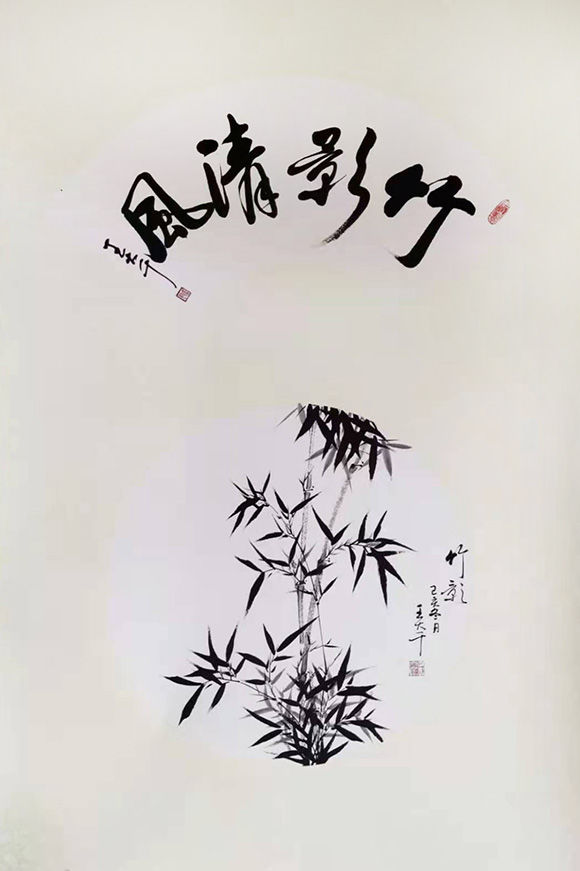 竹影清風
王大千
竹影
己亥冬月
王大千